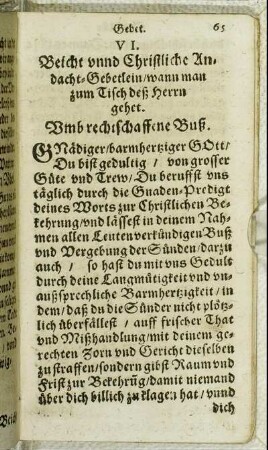 Gebet. 65
VI.
Beicht vnnd Christliche An-
dacht-Gebetlein/ wann man
zum Tisch deß Herrn
gehet.
Vmb rechtschaffene Buß.
GNädiger/ barmhertziger GOtt/
Du bist gedultig / von grosser
Güte vnd Trew/ Du beruffst vns
täglich durch die Gnaden-Predigt
deines Worts zur Christlichen Be-
kehrung/ vnd lässest in deinem Nah-
men allen Leuten verkündigen Buß
vnd Vergebung der Sünden/ darzu
auch / so hast du mit vns Gedult
durch deine Langmütigkeit vnd vn-
außsprechliche Barmhertzigkeit / in
dem/ daß du die Sünder nicht plötz-
lich überfällest / auff frischer That
vnd Mißhandlung/ mit deinem ge-
rechten Zorn vnd Gericht dieselben
zu straffen/ sondern gibst Raum vnd
Frist zur Bekehrũg/ damit niemand
über dich billich zu klagen hat / vnnd
dich